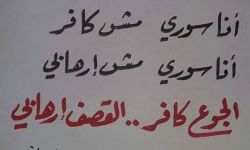 أنا سوري مش كافر
أنا سوري مش إرهابي
الجوع كافر .. القصف إرهابي